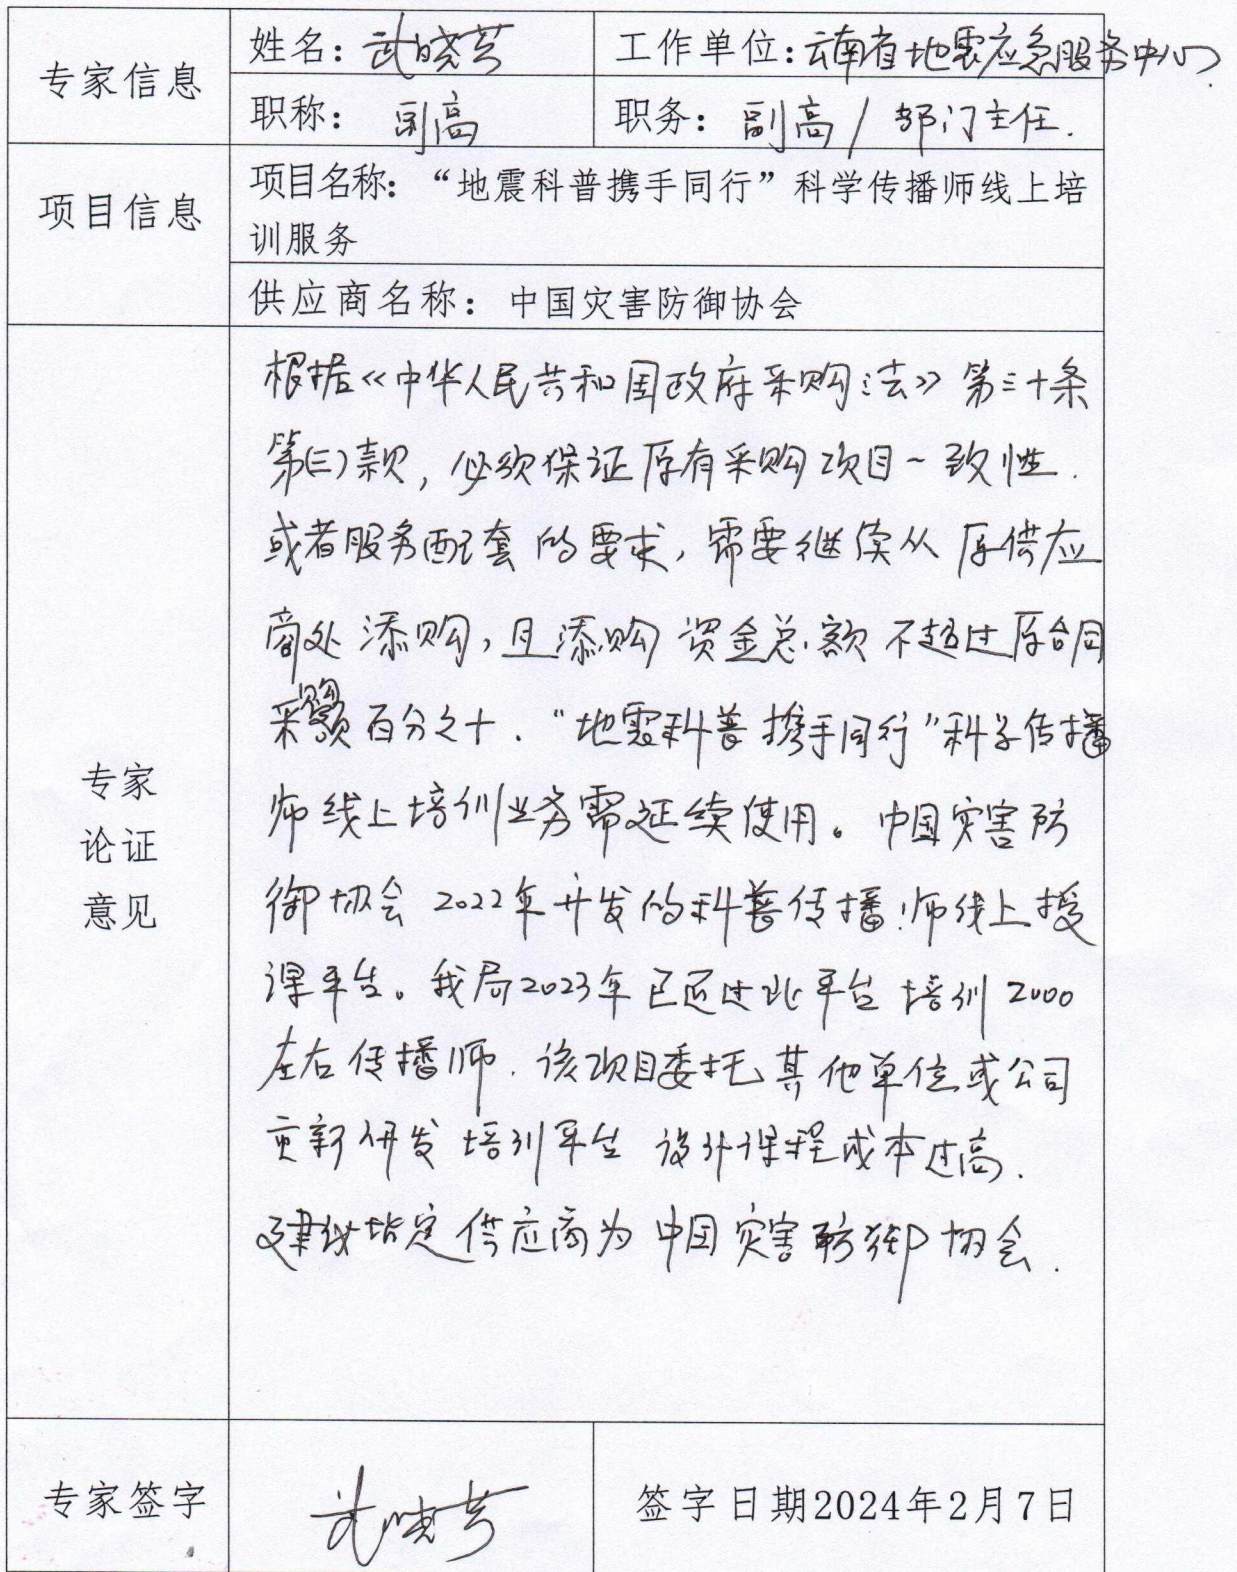 专家信息
姓名：武晓芳
工作单位：云南省地震应急服务中心
职称：副高
职务：副高/部门主任.
项目信息
项目名称：“地震科普携手同行”科学传播师线上培
训服务
供应商名称：中国灾害防御协会
专家
论证
意见
根据《中华人民共和国政府采购法》第三十条
第(三)款，必须保证原有采购项目一致性.
或者服务配套的要求，需要继续从原供应
商处添购，且添购资金总额不超过原合同
采购额百分之十．“地震科普携手同行”科学传播
师线上培训业务需延续使用。中国灾害防
御协会2022年开发的科普传播师线上授
课平台。我局2023年已通过此平台培训2000
左右传播师．该项目委托其他单位或公司
重新研发培训平台设计课程成本过高．
建议指定供应商为中国灾害防御协会．
专家签字
武晓芳
签字日期2024年2月7日